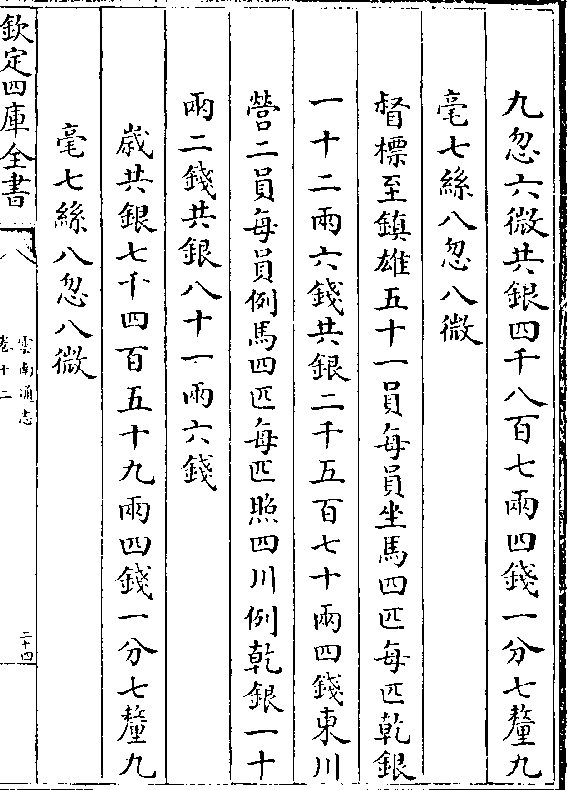 九忽六微共銀四千八百七兩四錢一分七釐九
毫七絲八忽八微
督標至鎮雄五十一員每員坐馬四匹每匹乾銀
一十二兩六錢共銀二千五百七十兩四錢東川
營二員每員例馬四匹每匹照四川例乾銀一十
兩二錢共銀八十一兩六錢
歲共銀七千四百五十九兩四錢一分七釐九
毫七絲八忽八微
欽定四庫全書
雲南通志
卷十二
二十四